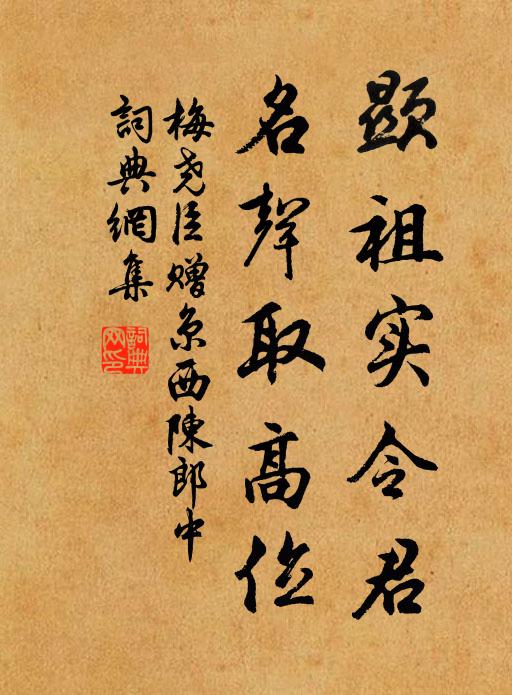 顯祖实令君
名聲取高位
梅尧臣赠京西陳郎中
詞典網集
詞典
网印